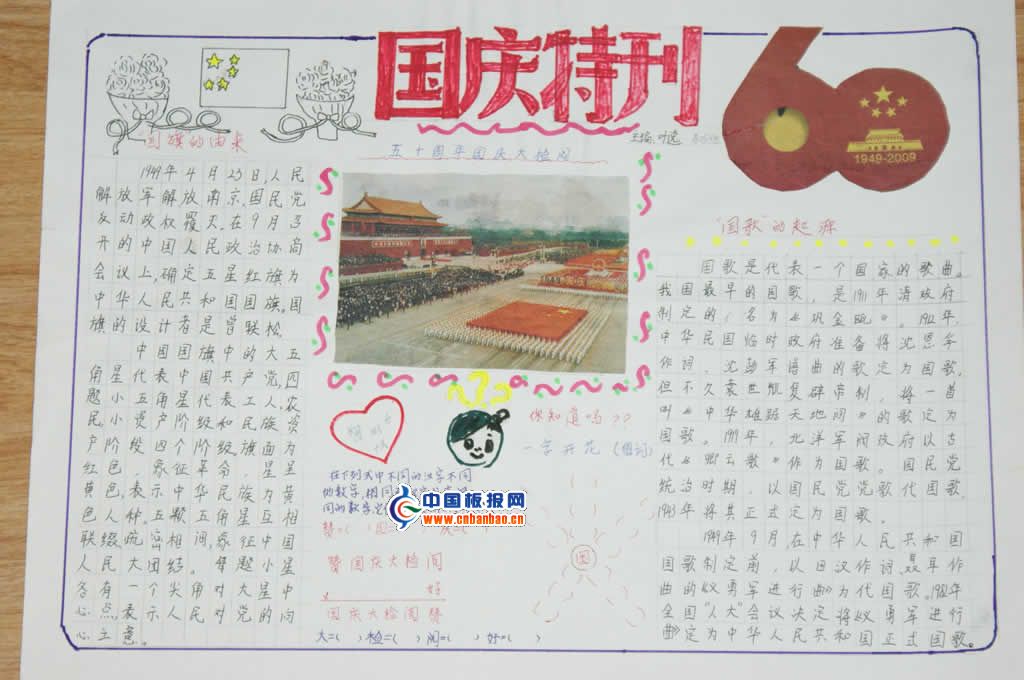 国庆特刊
60
1949-2009
主编:叶逸
五十周年国庆大检阅
"国旗"的由来
1949年4月23日人民
解放军解放南京,国民党
反动政权覆灭,在9月召
开的中国人民政治协商
会议上,确定五星红旗为
中华人民共和国国旗。国
旗的设计者是曾联松。
中国国旗中的大五
角星代表中国共产党,四
颗小五角星代表工人,农
民,小资产阶级和民族资
产阶级四个阶级,旗面为
红色,象征革命,星呈
黄色,表示中华民族为黄
色人种。五颗五角星互相
联缀,疏密相间,象征中国
人民大团结。每颗小星
各有一个尖角对大星中
心点,表示人民对党的向
心之意。
你知道吗??
一字开花(组词)
国
在下列式中不同的汉字不同
的数字,相同
同的数字
中国板报网
www.cnbanbao.cn
赞国庆大检阅
×好
国庆大检阅赞
大=( )检=( )阅=( )好=( )
"国歌"的起源
国歌是代表一个国家的歌曲。
我国最早的国歌,是1911年清政府
制定的,(名为《巩金瓯》。1912年,
中华民国临时政府准备将沈恩孚
作词,沈彭年谱曲的歌定为国歌,
但不久袁世凯复辟帝制,将一首
叫《中华雄踞天地间》的歌定为
国歌。1919年,北洋军阀政府以古
代《卿云歌》作为国歌。国民党
统治时期,以国民党党歌代国歌,
1943年将其正式定为国歌
1949年9月,在中华人民共和国
国歌制定前,以田汉作词,聂耳作
曲的《义勇军进行曲》为代国歌。1982年
全国"人大"会议决定将《义勇军进行
曲》定为中华人民共和国正式国歌。